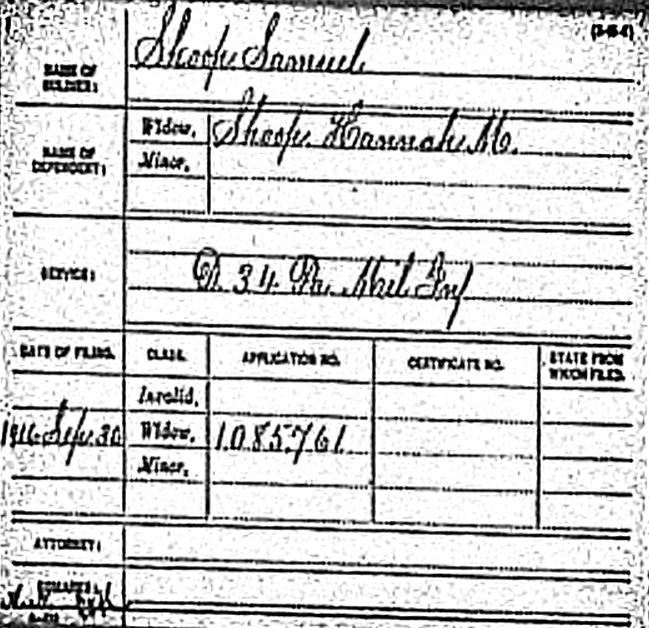 Shoop Samuel
NAME OF SOLDIER:
NAME OF DEPENDENT:
Widow, Shoop Hannah M.
Minor,
SERVICE:
D 34 Pa. Mil Inf
DATE OF FILING. CLASS. APPLICATION NO. CERTIFICATE NO. STATE FROM WHICH FILED.
Invalid,
1916 Sep. 30 Widow, 1085761
Minor,
ATTORNEY:
REMARKS: